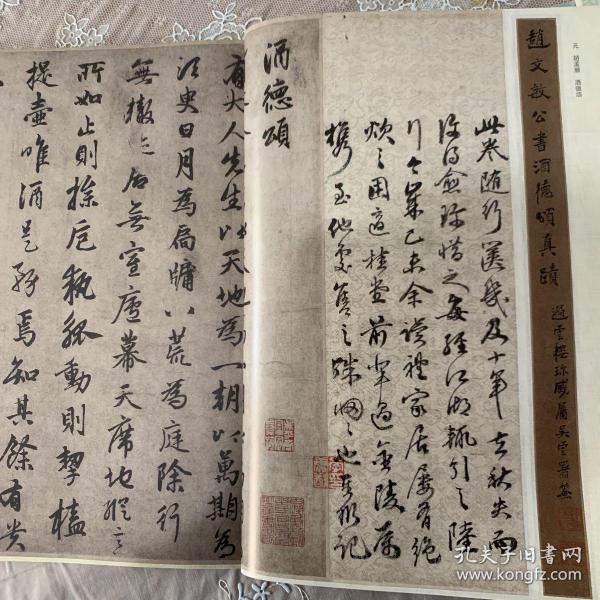 元 趙孟頫 酒德頌
趙文敏公書酒德頌真蹟
過雲樓珍藏屬吳雲署籤
此卷隨行篋幾及十年
去秋失而
復得愈珍惜之每經江湖輒引之
行
己未余讀禮家居屢有絕
炊之困適桂堂前輩過金陵屬
攜至他處售之
記
酒德頌
有大人先生以天地為一朝以萬期為
須臾日月為扃牖八荒為庭除行
無轍迹居無室廬幕天席地縱意
所如止則操卮執瓢動則挈榼
提壺唯酒是務焉知其餘有貴
孔夫子旧书网
www.kongfz.com